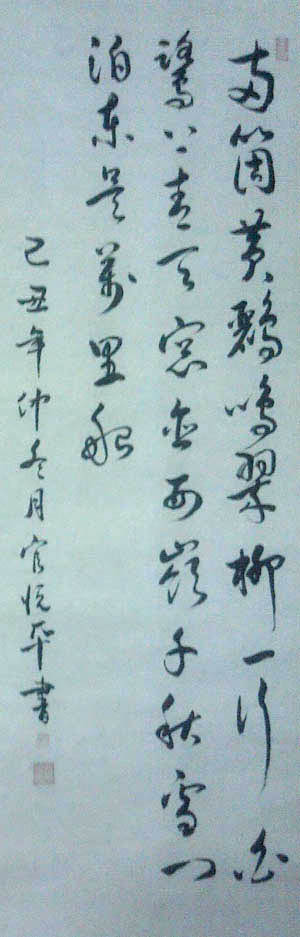 两箇黄鸝鳴翠柳一行白
鷺上青天窓含西嶺千秋雪門
泊東吴萬里船
己丑年仲冬月官悦華書